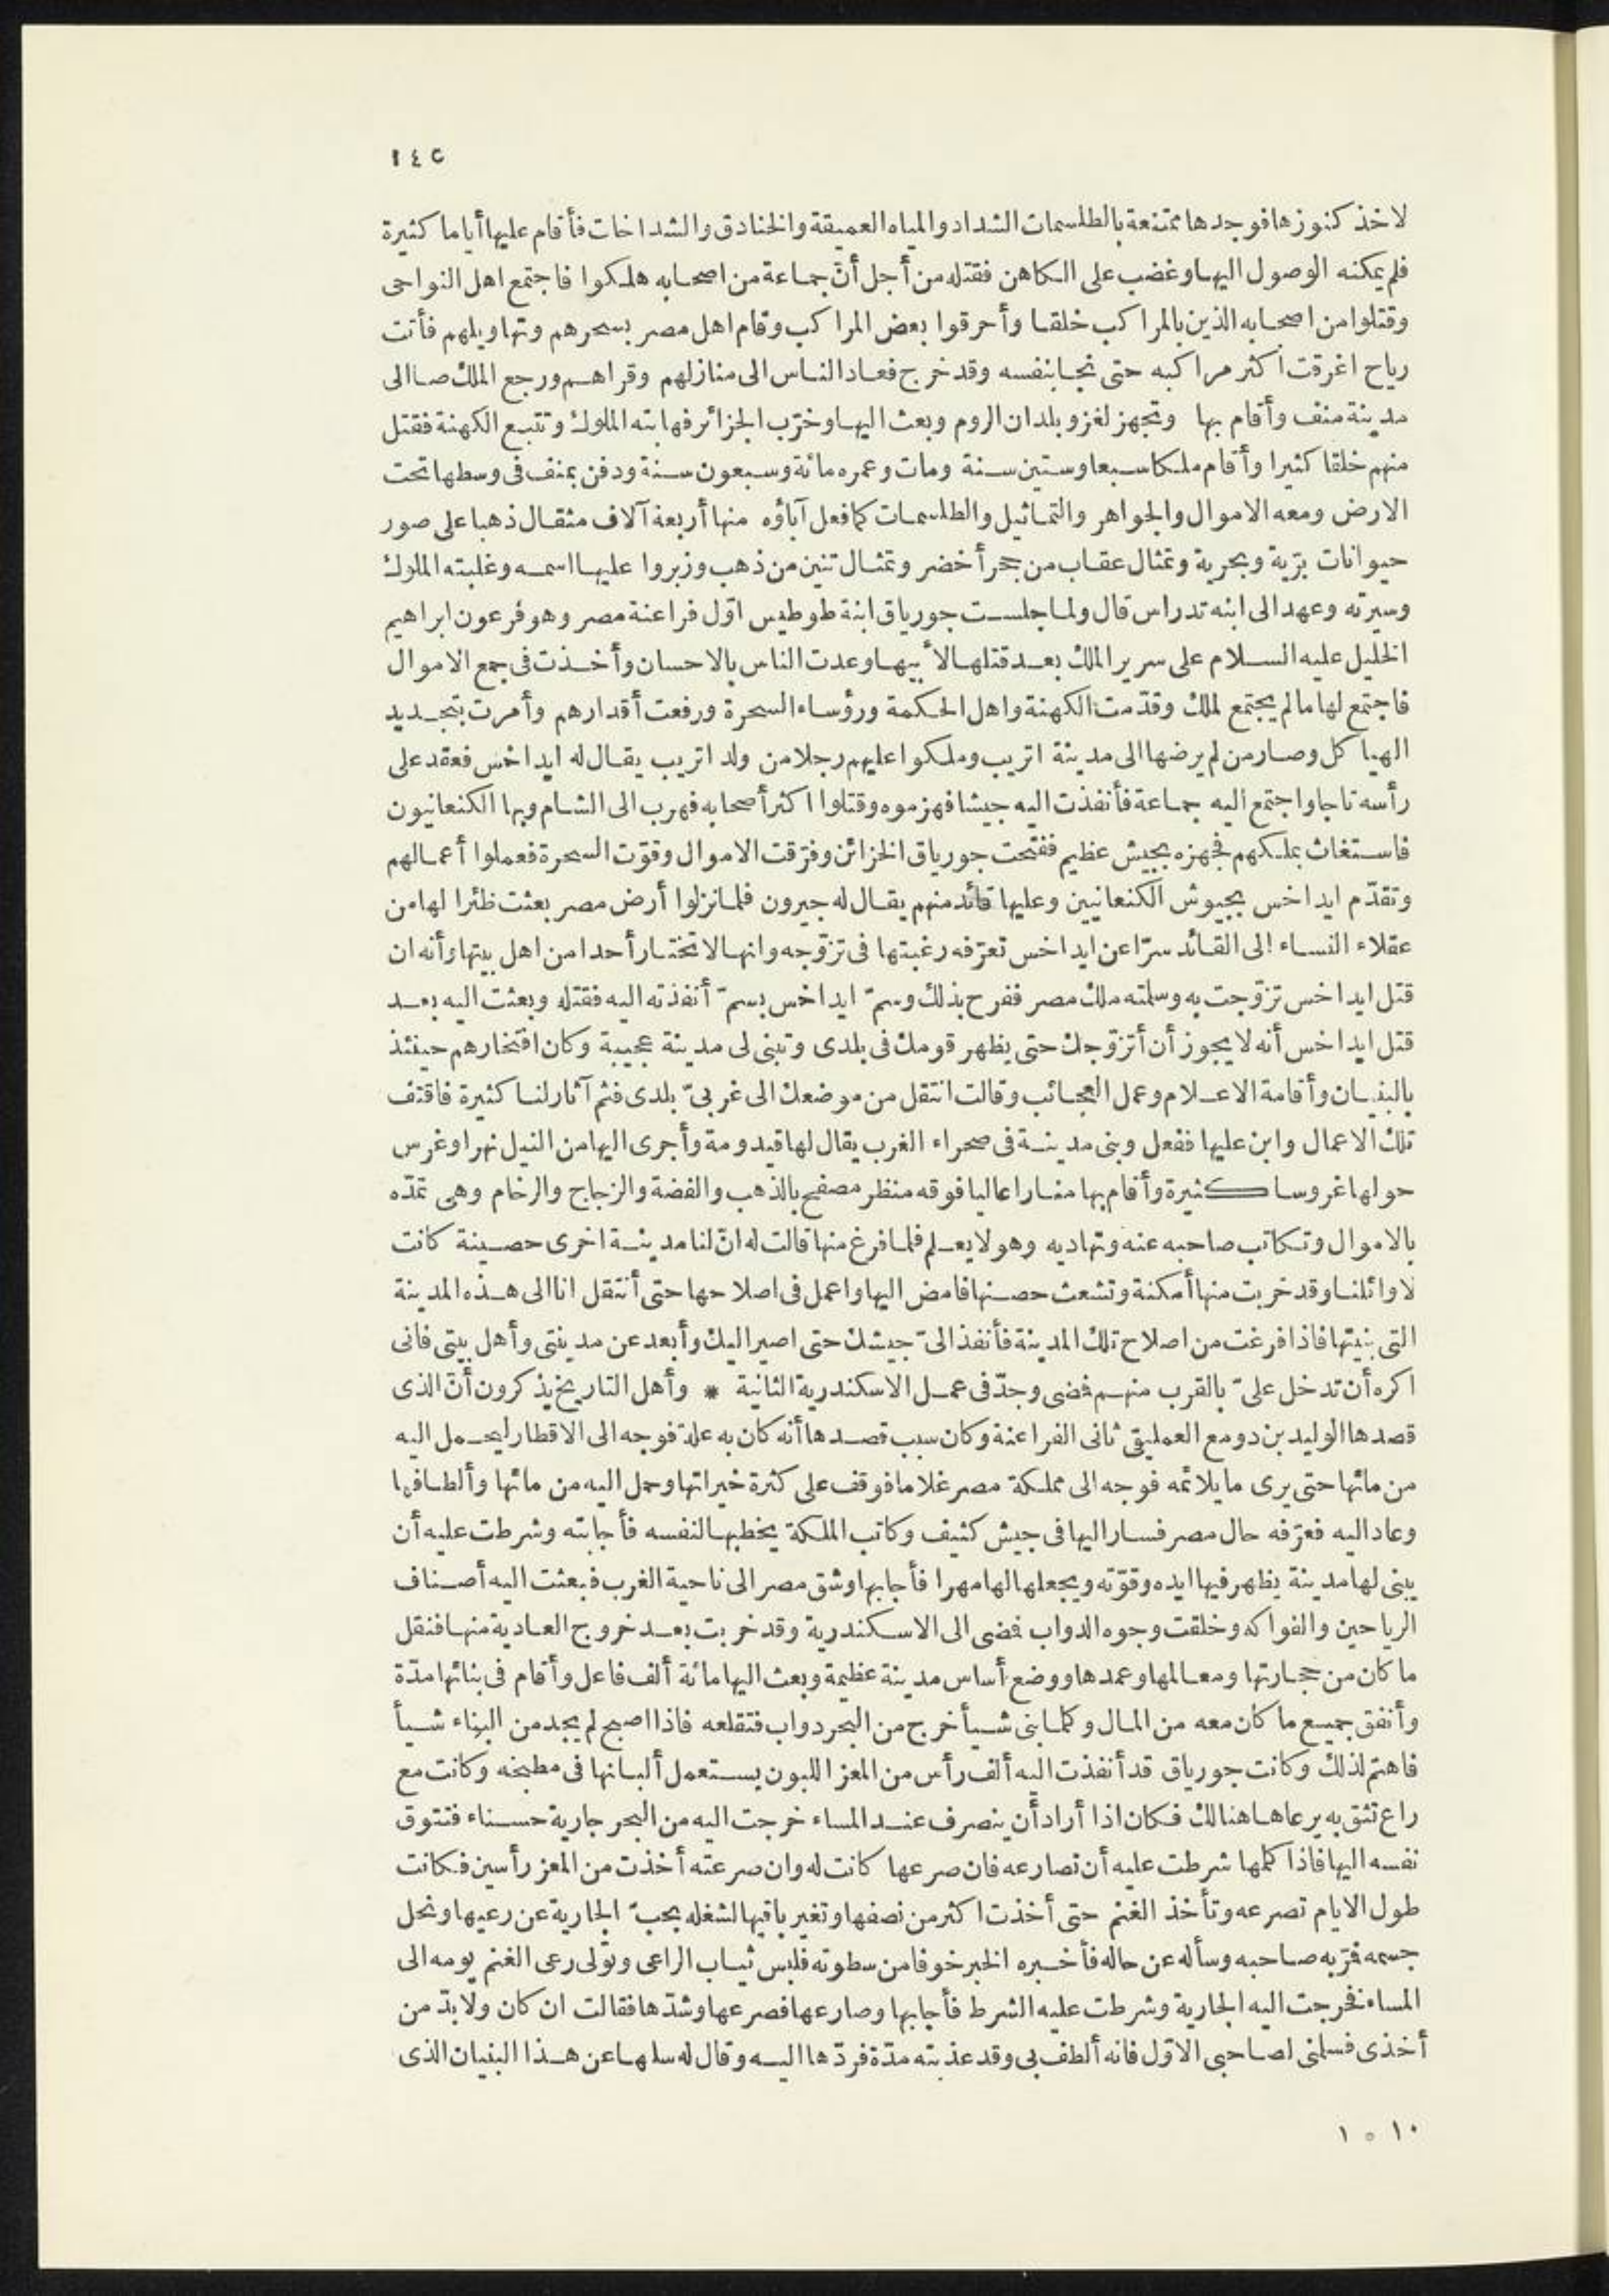 ١٤٥
لاخذ كنوزها فوجدها ممتنعة بالطلسمات الشداد والمياه العميقة والخنادق والشداخات فأقام عليها أياما كثيرة
فلم يمكنه الوصول اليها وغضب على الكاهن فقتله من أجل أنّ جماعة من اصحابه هلكوا فاجتمع اهل النواحى
وقتلوا من اصحابه الذين بالمراكب خلقا وأحرقوا بعض المراكب وقام اهل مصر بسحرهم وتهاويلهم فأتت
رياح اغرقت اكثر مراكبه حتى نجا بنفسه وقد خرج فعاد الناس الى منازلهم وقراهم ورجع الملك صا الى
مدينة منف وأقام بها وتجهز لغزو بلدان الروم وبعث اليها وخرّب الجزائر فهابته الملوك وتتبع الكهنة فقتل
منهم خلقا كثيرا وأقام ملكا سبعا وستين سنة ومات وعمره مائة وسبعون سنة ودفن بمنف فى وسطها تحت
الارض ومعه الاموال والجواهر والتماثيل والطلسمات كما فعل آباؤه منها أربعة آلاف مثقال ذهبا على صور
حيوانات برّية وبحرية وتمثال عقاب من حجر أخضر وتمثال تنين من ذهب وزبروا عليها اسمه وغلبته الملوك
وسيرته وعهد الى ابنه تدراس قال ولما جلست جورياق ابنة طوطيس اوّل فراعنة مصر وهو فرعون ابراهيم
الخليل عليه السلام على سرير الملك بعد قتلها لأبيها وعدت الناس بالاحسان وأخذت فى جمع الاموال
فاجتمع لها ما لم يجتمع لملك وقدّمت الكهنة واهل الحكمة ورؤساء السحرة ورفعت أقدارهم وأمرت بتجديد
الهياكل وصار من لم يرضها الى مدينة اتريب وملكوا عليهم رجلا من ولد اتريب يقال له ايداخس فعقد على
رأسه تاجا واجتمع اليه جماعة فأنفذت اليه جيشا فهزموه وقتلوا اكثر أصحابه فهرب الى الشام وبها الكنعانيون
فاستغاث بملكهم فجهزه بجيش عظيم ففتحت جورياق الخزائن وفرّقت الاموال وقوّت السحرة فعملوا أعمالهم
وتقدّم ايداخس بجيوش الكنعانيين وعليها قائد منهم يقال له جيرون فلما نزلوا أرض مصر بعثت ظئرا لها من
عقلاء النساء الى القائد سرّا عن ايداخس تعرّفه رغبتها فى تزوّجه وانها لا تختار أحدا من اهل بيتها وأنه ان
قتل ايداخس تزوّجت به وسلمته ملك مصر ففرح بذلك وسمّ ايداخس بسمّ أنفذته اليه فقتله وبعثت اليه بعد
قتل ايداخس أنه لا يجوز أن أتزوّجك حتى يظهر قومك فى بلدى وتبنى لى مدينة عجيبة وكان افتخارهم حينئذ
بالبنيان وأقامة الاعلام وعمل العجائب وقالت انتقل من موضعك الى غربىّ بلدى فثم آثار لنا كثيرة فاقتف
تلك الاعمال وابن عليها ففعل وبنى مدينة فى صحراء الغرب يقال لها قيدومة وأجرى اليها من النيل نهرا وغرس
حولها غروسا كثيرة وأقام بها منارا عاليا فوقه منظر مصفح بالذهب والفضة والزجاج والرخام وهى تمدّه
بالاموال وتكاتب صاحبه عنه وتهاديه وهو لا يعلم فلما فرغ منها قالت له انّ لنا مدينة اخرى حصينة كانت
لاوائلنا وقد خربت منها أمكنة وتشعث حصنها فامض اليها واعمل فى اصلاحها حتى أنتقل انا الى هذه المدينة
التى بنيتها فاذا فرغت من اصلاح تلك المدينة فأنفذ الىّ جيشك حتى اصير اليك وأبعد عن مدينتى وأهل بيتى فانى
اكره أن تدخل علىّ بالقرب منهم فمضى وجدّ فى عمل الاسكندرية الثانية * وأهل التاريخ يذكرون أنّ الذى
قصدها الوليد بن دومع العمليقى ثانى الفراعنة وكان سبب قصدها أنه كان به علة فوجه الى الاقطار ليحمل اليه
من مائها حتى يرى ما يلائمه فوجه الى مملكة مصر غلاما فوقف على كثرة خيراتها وحمل اليه من مائها وألطافها
وعاد اليه فعرّفه حال مصر فسار اليها فى جيش كثيف وكاتب الملكة يخطبها لنفسه فأجابته وشرطت عليه أن
يبنى لها مدينة يظهر فيها ايده وقوّته ويجعلها لها مهرا فأجابها وشق مصر الى ناحية الغرب فبعثت اليه أصناف
الرياحين والفواكه وخلقت وجوه الدواب فمضى الى الاسكندرية وقد خربت بعد خروج العادية منها فنقل
ما كان من حجارتها ومعالمها وعمدها ووضع أساس مدينة عظيمة وبعث اليها مائة ألف فاعل وأقام فى بنائها مدّة
وأنفق جميع ما كان معه من المال وكلما بنى شيأ خرج من البحر دواب فتقلعه فاذا اصبح لم يجد من البناء شيأ
فاهتم لذلك وكانت جورياق قد أنفذت اليه ألف رأس من المعز اللبون يستعمل ألبانها فى مطبخه وكانت مع
راع تثق به يرعاها هنالك فكان اذا أراد أن ينصرف عند المساء خرجت اليه من البحر جارية حسناء فتتوق
نفسه اليها فاذا كلمها شرطت عليه أن تصارعه فان صرعها كانت له وان صرعته أخذت من المعز رأسين فكانت
طول الايام تصرعه وتأخذ الغنم حتى أخذت اكثر من نصفها وتغير باقيها لشغله بحبّ الجارية عن رعيها ونحل
جسمه فمرّ به صاحبه وسأله عن حاله فأخبره الخبر خوفا من سطوته فلبس ثياب الراعى وتولى رعى الغنم يومه الى
المساء فخرجت اليه الجارية وشرطت عليه الشرط فأجابها وصارعها فصرعها وشدّها فقالت ان كان ولا بدّ من
أخذى فسلمنى لصاحبى الاوّل فانه ألطف بى وقد عذبته مدّة فردّها اليه وقال له سلها عن هذا البنيان الذى
١٠ ° ١